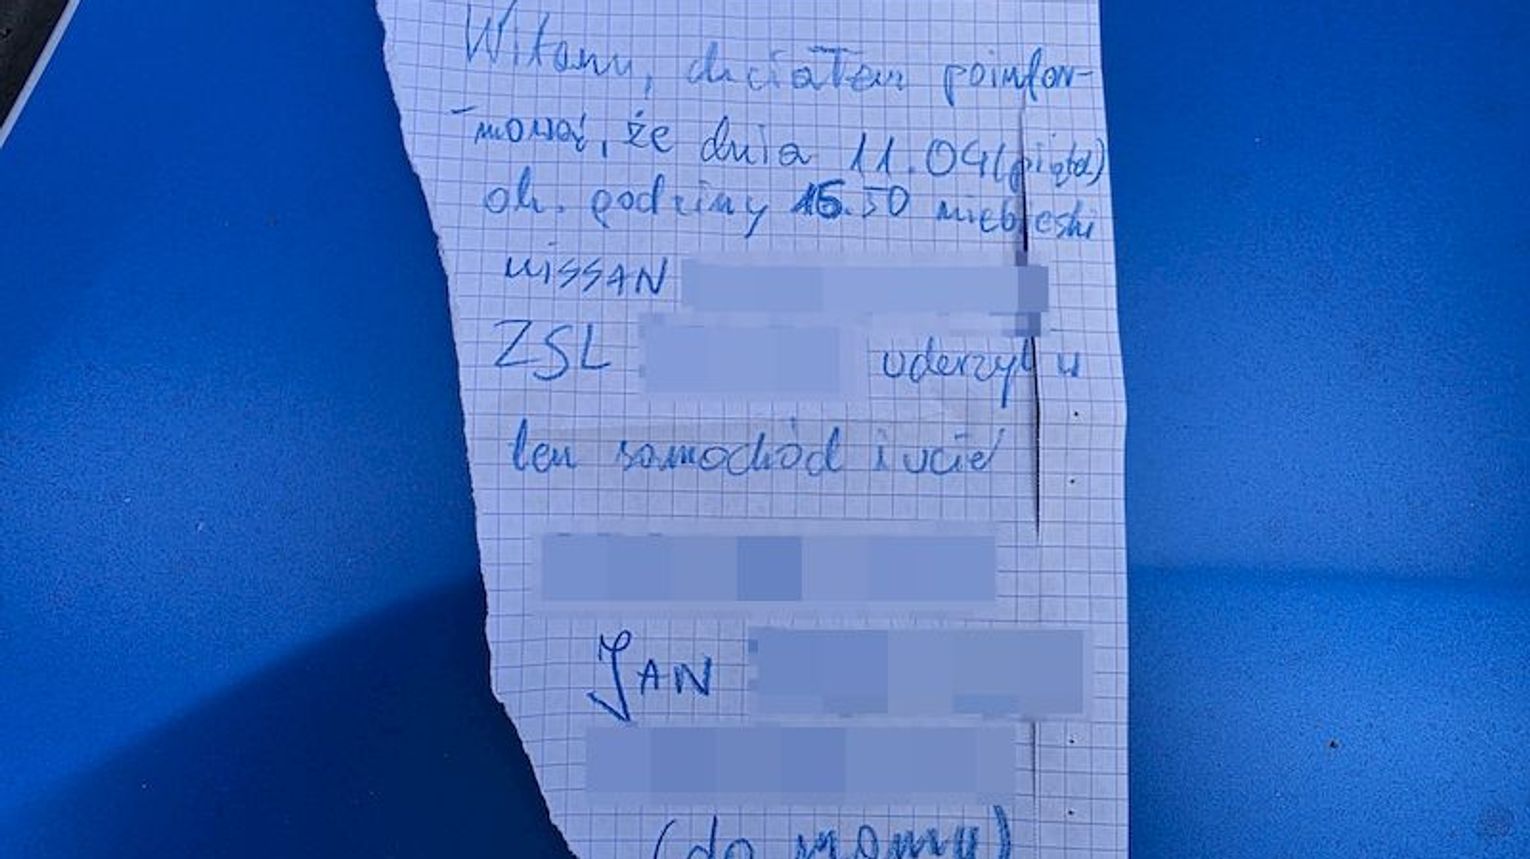 Witam, chciałem poinfor-
-mować, że dnia 11.04 (piątek)
ok. godziny 15.50 niebieski
NISSAN
ZSL uderzył w
ten samochód i uciekł
JAN
(do mamy)